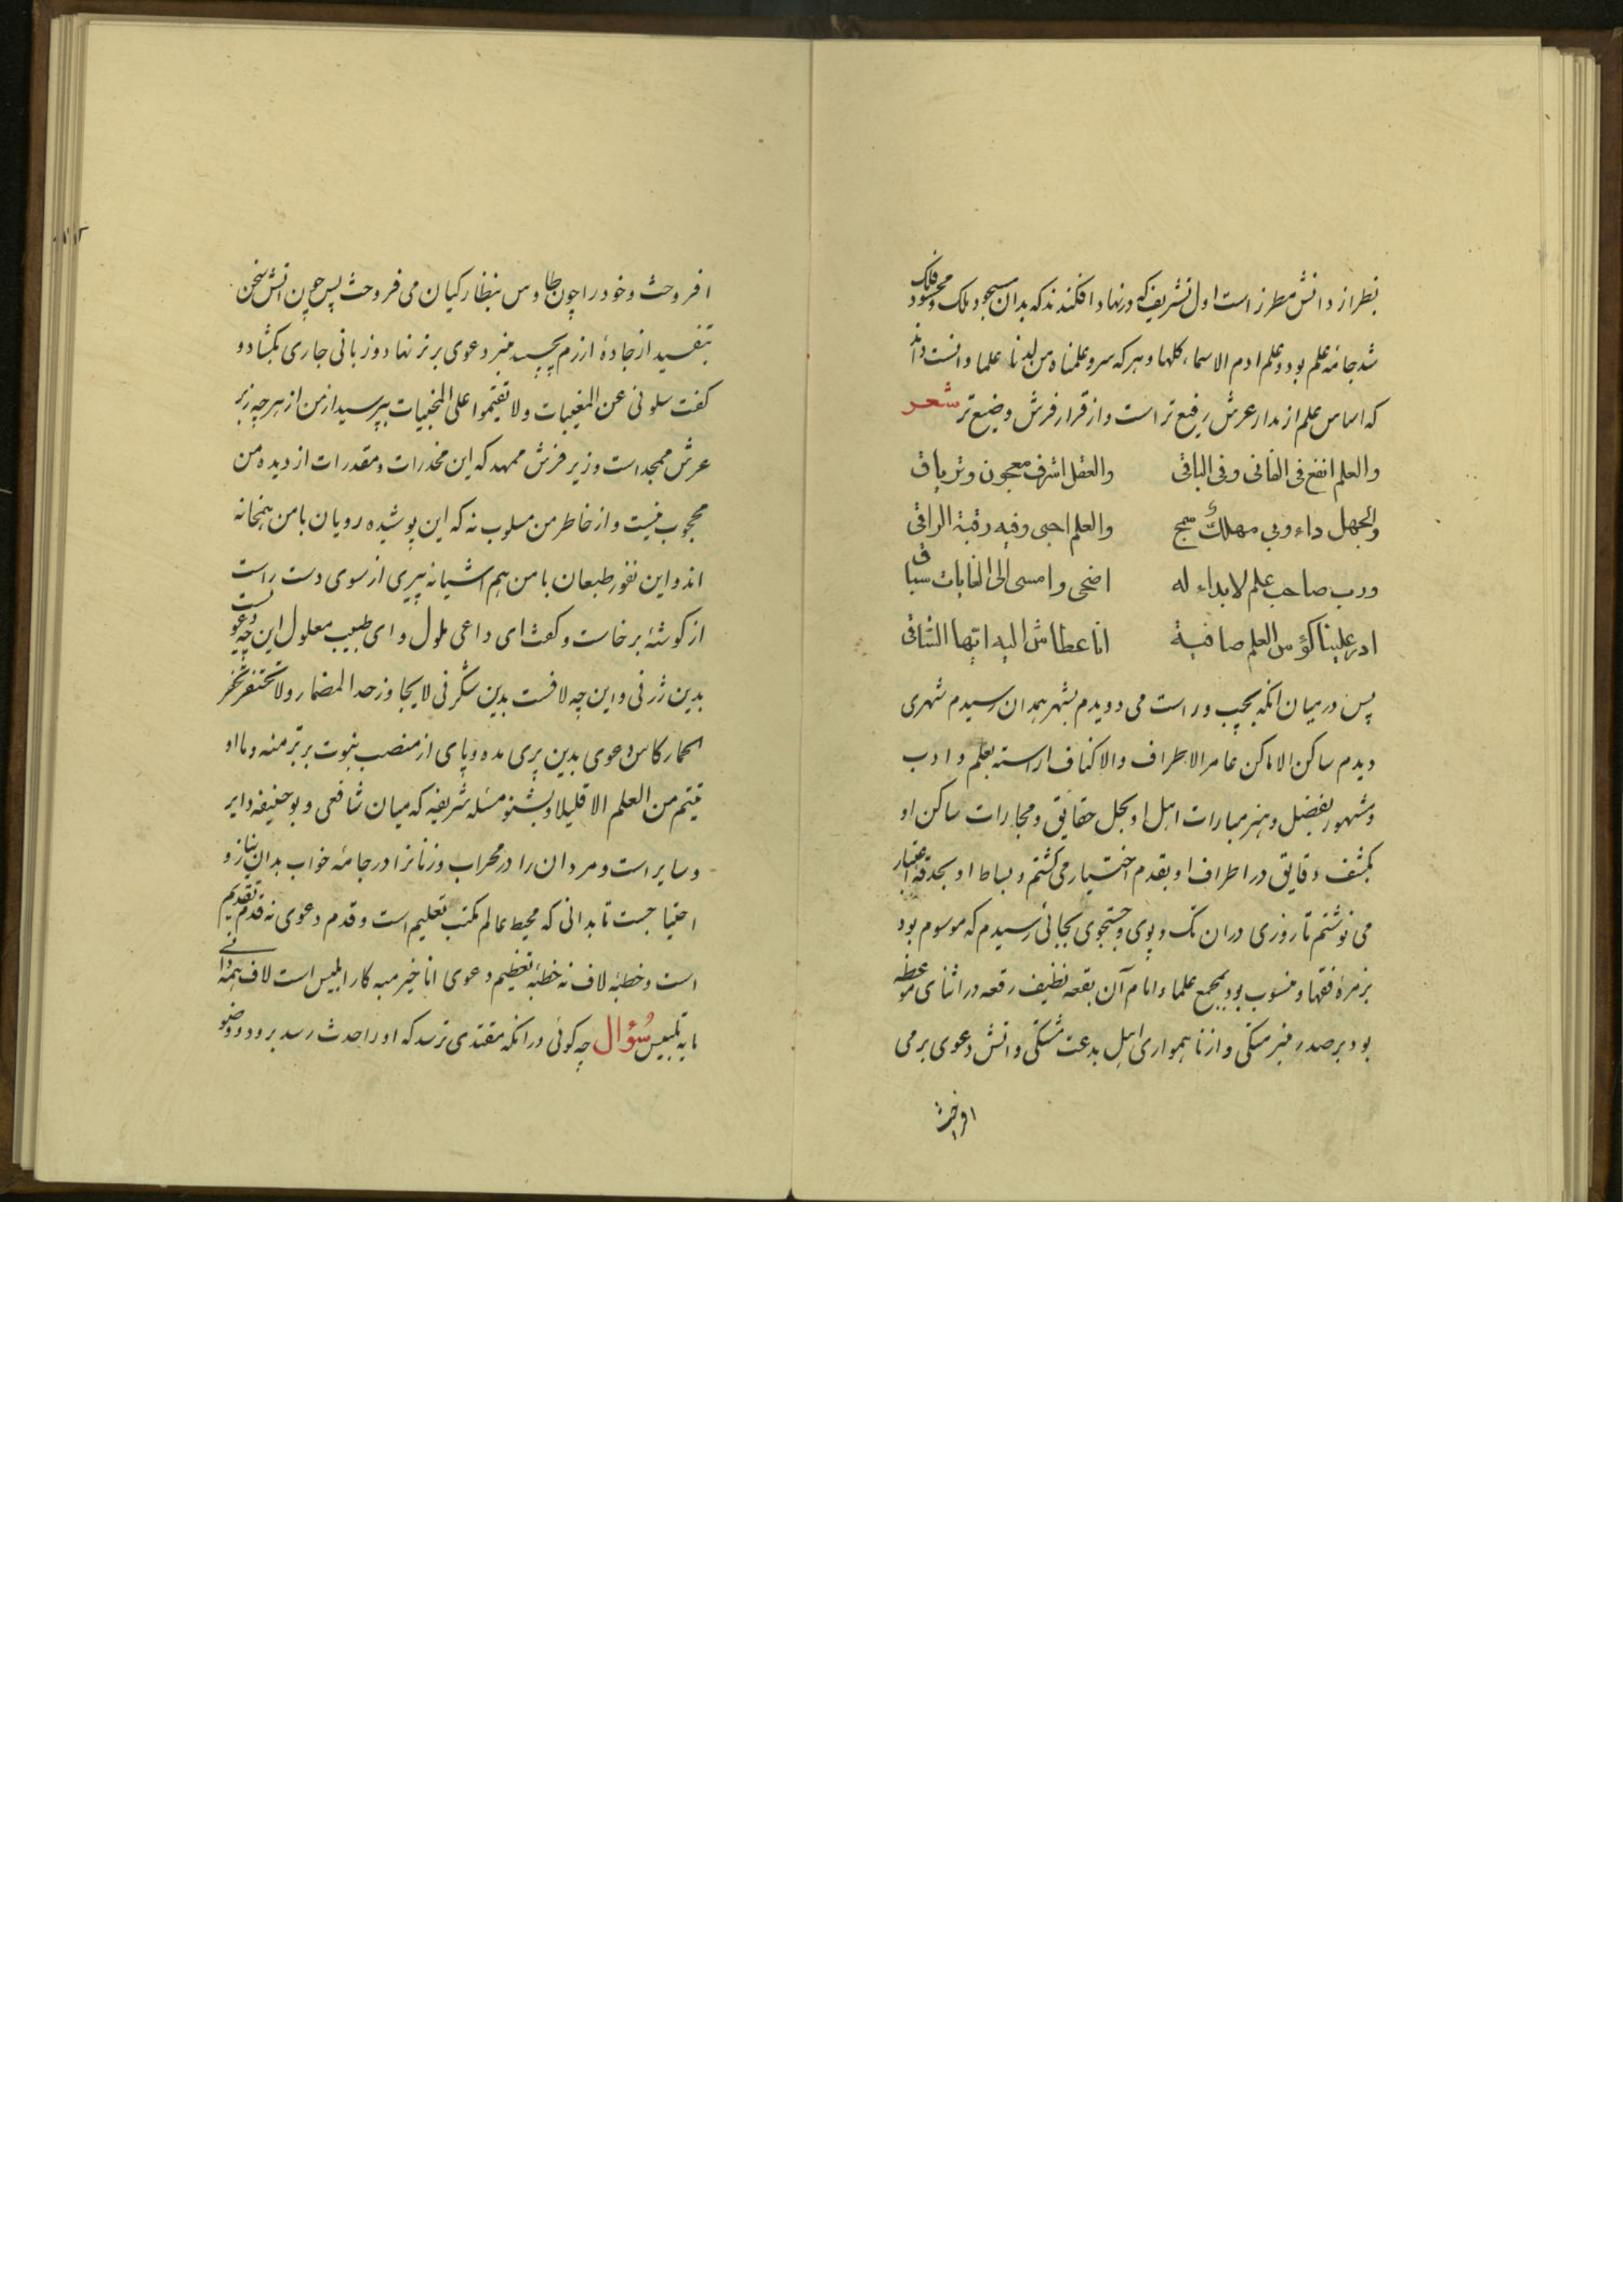 بطراز دانش مطرز است اول تشریف که در نهاد افکندند که بدان مسجود ملک و محسود فلک
شد جامه علم بود و علم ادم الاسماء کلها و هر که سر و علمناه من لدنا علما دانست داند
که اساس علم از مدار عرش رفیع تر است و از قرار فرش وضیع تر شعر
والعلم انفع فی الفانی وفی الباقی والعقل اشرف معجون وتریاق
والجهل داء دوی مهلک سمج والعلم احیی وفیه رقیة الراقی
ورب صاحب علم لابداء له اضحی وامسی الی الغایات سباق
ادر علینا کؤس العلم صافیة انا عطاش الیه ایها الساقی
پس در میان انکه بچپ و راست می دویدم بشهر همدان رسیدم شهری
دیدم ساکن الاماکن عامر الاطراف والاکناف اراسته بعلم و ادب
و مشهور بفضل و هنر مبارات اهل او بحل حقایق و مجارات ساکن او
بکشف دقایق در اطراف او بقدم اختیار می کشتم و بساط او بحدقه اعتبار
می نوشتم تا روزی دران تک و پوی و جستجوی بجائی رسیدم که موسوم بود
بزمرۀ فقها و منسوب بود بمجمع علما و امام آن بقعه نظیف رقعه در اثنای موعظه
بود بر صدر منبر متکی و از ناهمواری اهل بدعت مشتکی و اتش دعوی بر می
افروخت
افروخت و خود را چون طاوس بنظارکیان می فروخت پس چون اتش سخن
بتفسید از جادۀ ازرم بچسبید منبر دعوی برتر نهاد و زبانی جاری بکشاد و
کفت سلونی عن المغیبات ولا تقیموا علی المخبیات بپرسید از من از هر چه زبر
عرش ممجد است و زیر فرش ممهد که این مخدرات و مقدرات از دیده من
محجوب نیست و از خاطر من مسلوب نه که این پوشیده رویان با من همخانه
اند و این نفور طبعان با من هم اشیانه پیری از سوی دست راست
از کوشۀ برخاست و کفت ای داعی ملول و ای طبیب معلول این چه دعویست
بدین ژرفی و این چه لافست بدین شکرفی لا یجاوز حد المضمار ولا تختنفر تخفر
الحمار کاس دعوی بدین پری مده و پای از منصب نبوت برتر منه و ما او
تیتم من العلم الا قلیلا و بشنو مسئله شریفه که میان شافعی و بوحنیفه دایر
و سایر است و مردان را در محراب و زنانرا در جامۀ خواب بدان نیاز و
احتیاجست تا بدانی که محیط عالم مکتب تعلیم است و قدم دعوی نه قدم تقدیم
است و خطبۀ لاف نه خطبۀ تعظیم دعوی انا خیر منه کار ابلیس است لاف همه دانی
مایه تلبیس سؤال چه کوئی در انکه مقتدی ترسد که او را حدث رسد برود و وضو